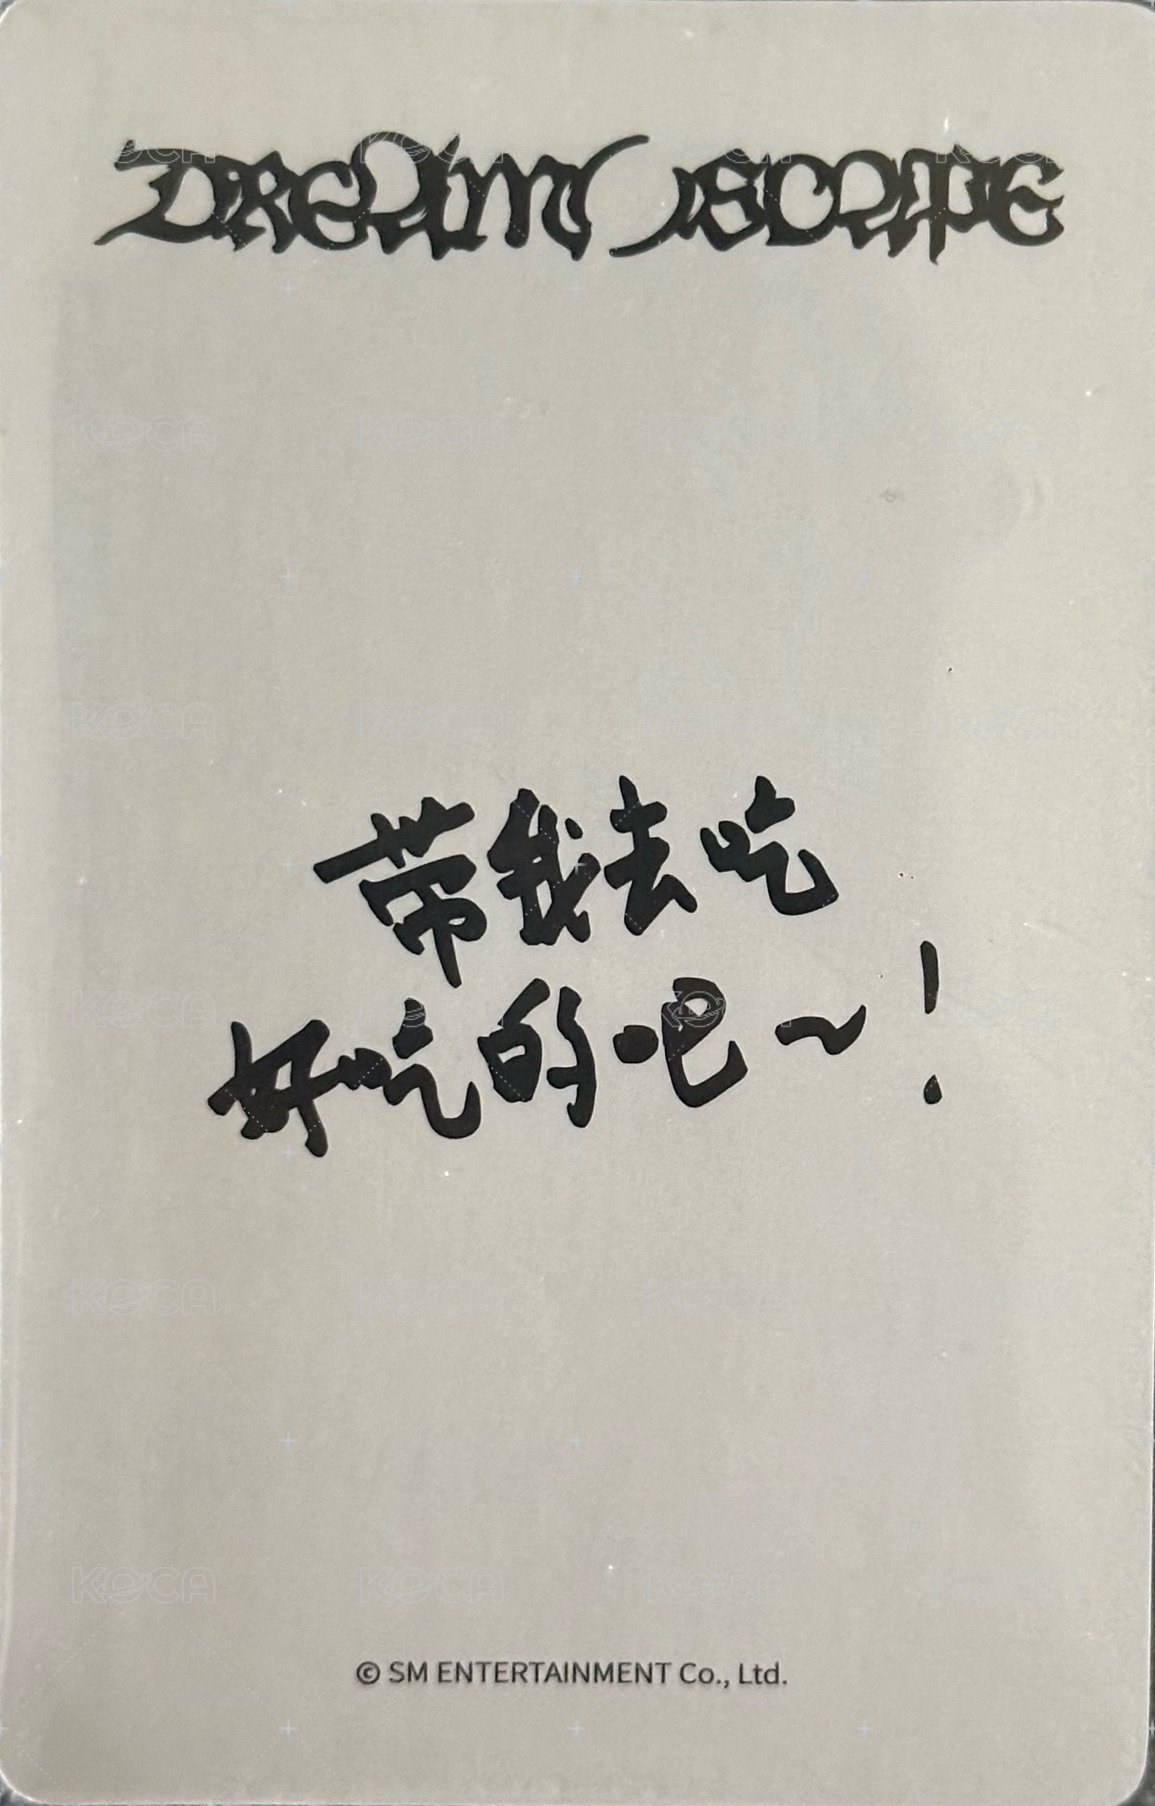 DREAM( )SCAPE
带我去吃
好吃的吧～!
© SM ENTERTAINMENT Co., Ltd.